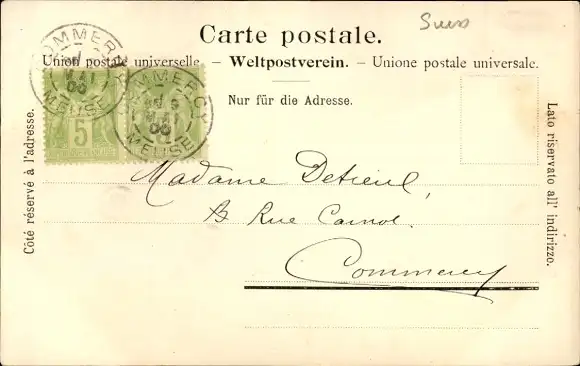 Suiss
Carte postale.
Union postale universelle. – Weltpostverein. – Unione postale universale.
Nur für die Adresse.
Côté réservé à l'adresse.
Lato riservato all' indirizzo.
COMMERCY
MAI
MEUSE
5
COMMERCY
MAI
MEUSE
Madame Detreul,
Rue Carnot.
Commercy